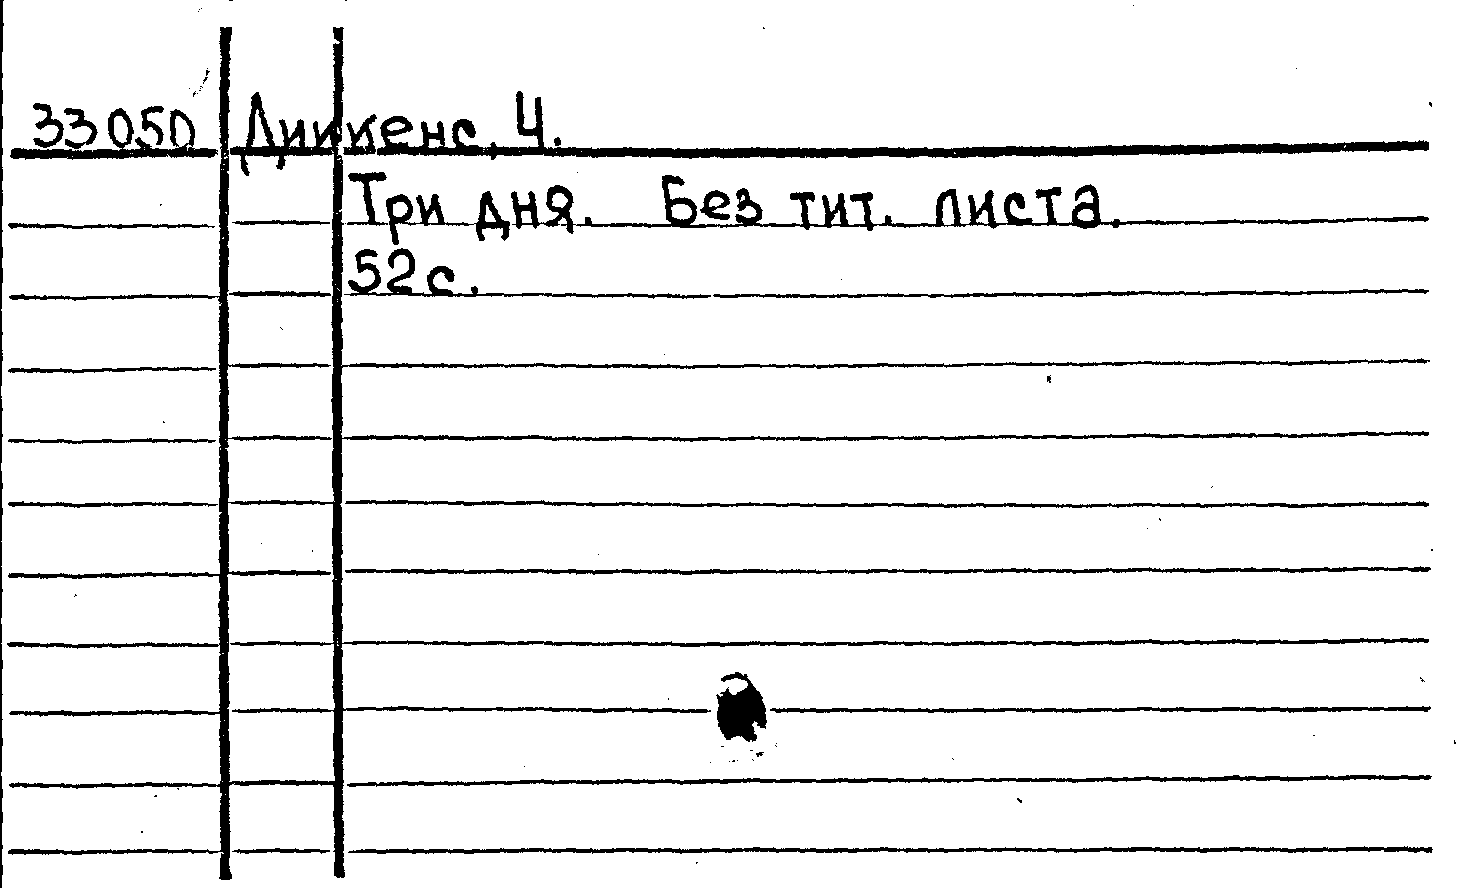 33050 Диккенс, Ч.
Три дня. Без тит. листа.
52 с.